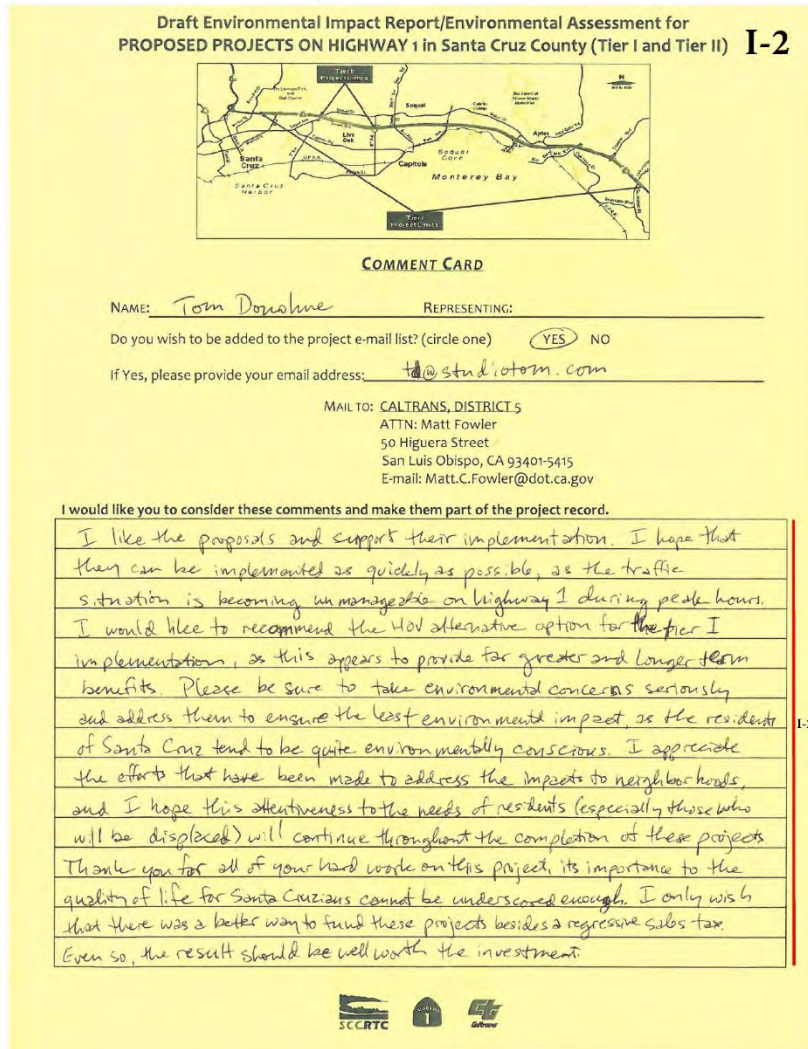 Draft Environmental Impact Report/Environmental Assessment for
PROPOSED PROJECTS ON HIGHWAY 1 in Santa Cruz County (Tier I and Tier II)
I-2
Tier II
Project Limits
N
Soquel
Live
Oak
Aptos
Santa
Cruz
Capitola
Soquel
Cove
Santa Cruz
Harbor
Monterey Bay
Tier I
Project Limits
COMMENT CARD
NAME: Tom Donohue REPRESENTING:
Do you wish to be added to the project e-mail list? (circle one) YES NO
If Yes, please provide your email address: td@studiotom.com
MAIL TO: CALTRANS, DISTRICT 5
ATTN: Matt Fowler
50 Higuera Street
San Luis Obispo, CA 93401-5415
E-mail: Matt.C.Fowler@dot.ca.gov
I would like you to consider these comments and make them part of the project record.
I like the proposals and support their implementation. I hope that
they can be implemented as quickly as possible, as the traffic
situation is becoming unmanageable on highway 1 during peak hours.
I would like to recommend the HOV alternative option for the tier I
implementation, as this appears to provide far greater and longer term
benefits. Please be sure to take environmental concerns seriously
and address them to ensure the least environmental impact, as the residents
of Santa Cruz tend to be quite environmentally conscious. I appreciate
the efforts that have been made to address the impacts to neighborhoods,
and I hope this attentiveness to the needs of residents (especially those who
will be displaced) will continue throughout the completion of these projects
Thank you for all of your hard work on this project, its importance to the
quality of life for Santa Cruzians cannot be underscored enough. I only wish
that there was a better way to fund these projects besides a regressive sales tax.
Even so, the result should be well worth the investment.
SCCRTC
1
Caltrans